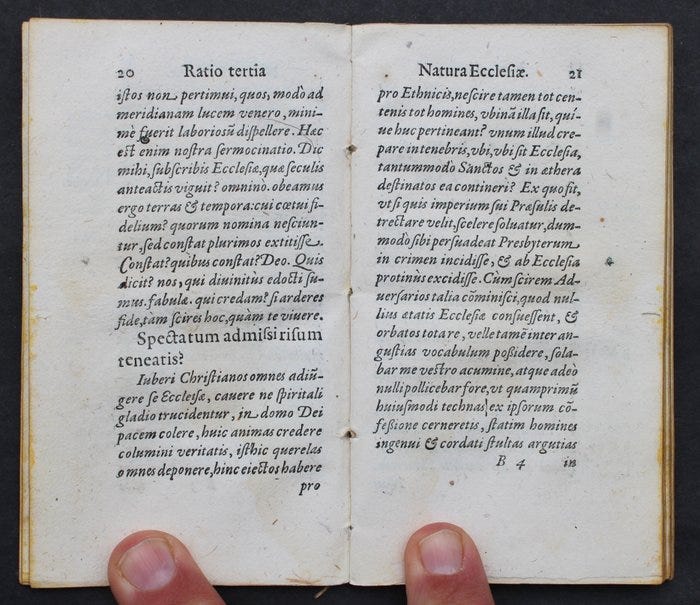 20 Ratio tertia
istos non pertimui, quos, modò ad
meridianam lucem venero, mini-
mè fuerit laboriosũ dispellere. Hæc
est enim nostra sermocinatio. Dic
mihi, subscribis Ecclesiæ, quæ seculis
anteactis viguit? omnino. obeamus
ergo terras & tempora: cui cœtui fi-
delium? quorum nomina nesciun-
tur, sed constat plurimos extitisse.
Constat? quibus constat? Deo. Quis
dicit? nos, qui diuinitùs edocti su-
mus. fabulæ. qui credam? si arderes
fide, tàm scires hoc, quàm te viuere.
Spectatum admissi risum
teneatis?
Iuberi Christianos omnes adiũ-
gere se Ecclesiæ, cauere ne spiritali
gladio trucidentur, in domo Dei
pacem colere, huic animas credere
columini veritatis, isthic querelas
omnes deponere, hinc eiectos habere
pro
Natura Ecclesiæ. 21
pro Ethnicis, nescire tamen tot cen-
tenis tot homines, vbinã illa sit, qui-
ue huc pertineant? vnum illud cre-
pare in tenebris, vbi, vbi sit Ecclesia,
tantummodò Sanctos & in æthera
destinatos ea contineri? Ex quo fit,
vt si quis imperium sui Præsulis de-
trectare velit, scelere soluatur, dum-
modò sibi persuadeat Presbyterum
in crimen incidisse, & ab Ecclesia
protinùs excidisse. Cùm scirem Ad-
uersarios talia cõminisci, quod nul-
lius ætatis Ecclesiæ consuessent, &
orbatos tota re, velle tamẽ inter an-
gustias vocabulum possidere, sola-
bar me vestro acumine, atque adeò
nulli pollicebar fore, vt quamprimũ
huiusmodi technas ex ipsorum cõ-
fessione cerneretis, statim homines
ingenui & cordati stultas argutias
B 4 in